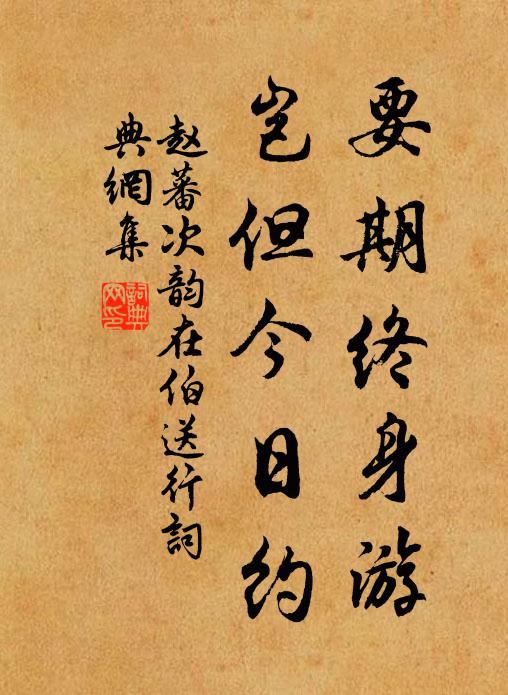 要期终身游
岂但今日约
赵蕃次韵在伯送行词
典網集
詞典網印